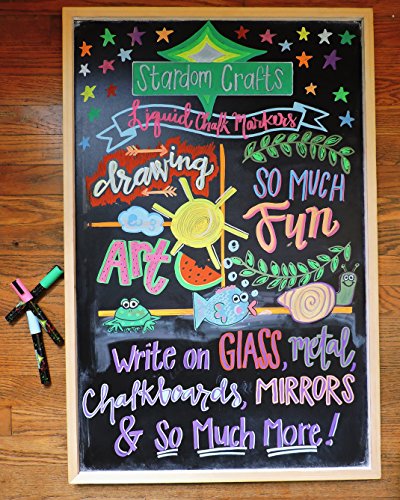 Stardom Crafts
Liquid Chalk Markers
drawing
SO MUCH
Fun
Art
Write on GLASS, metal,
Chalkboards, MIRRORS
& So Much More!